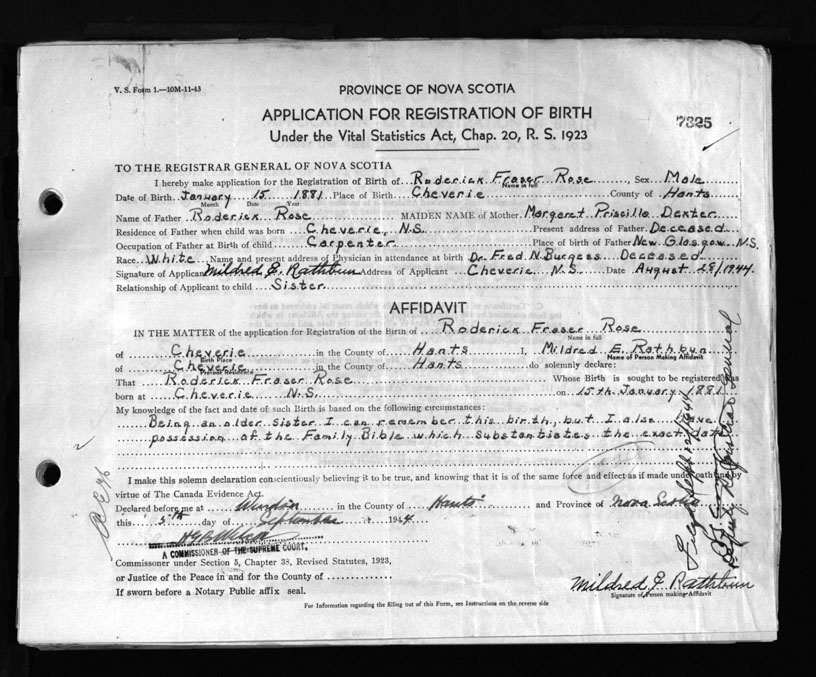 V. S. Form 1.—10M-11-43
PROVINCE OF NOVA SCOTIA
APPLICATION FOR REGISTRATION OF BIRTH
7325
Under the Vital Statistics Act, Chap. 20, R. S. 1923
TO THE REGISTRAR GENERAL OF NOVA SCOTIA
I hereby make application for the Registration of Birth of Roderick Fraser Rose Sex Male
Name in full
Date of Birth January 15 1881 Place of Birth Cheverie County of Hants
Month Date Year
Name of Father Roderick Rose MAIDEN NAME of Mother Margaret Priscilla Dexter
Residence of Father when child was born Cheverie, N.S. Present address of Father Deceased
Occupation of Father at Birth of child Carpenter Place of birth of Father New Glasgow N.S.
Race White Name and present address of Physician in attendance at birth Dr. Fred. N. Burgess Deceased
Signature of Applicant Mildred E. Rathbun Address of Applicant Cheverie N.S. Date August 29/1944
Relationship of Applicant to child Sister
AFFIDAVIT
IN THE MATTER of the application for Registration of the Birth of Roderick Fraser Rose
Name in full
of Cheverie in the County of Hants I, Mildred E. Rathbun
Birth Place Name of Person Making Affidavit
of Cheverie in the County of Hants do solemnly declare:
Present Residence
That Roderick Fraser Rose Whose Birth is sought to be registered, was
born at Cheverie N.S. on 15th January 1881
My knowledge of the fact and date of such Birth is based on the following circumstances:
Being an older sister I can remember this birth, but I also have
possession of the Family Bible which substantiates the exact date
I make this solemn declaration conscientiously believing it to be true, and knowing that it is of the same force and effect as if made under oath and by
virtue of The Canada Evidence Act.
Declared before me at Windsor in the County of Hants and Province of Nova Scotia
this 5th day of September 1944
A COMMISSIONER OF THE SUPREME COURT.
Commissioner under Section 5, Chapter 38, Revised Statutes, 1923,
or Justice of the Peace in and for the County of
If sworn before a Notary Public affix seal.
Mildred E. Rathbun
Signature of Person making Affidavit
For Information regarding the filling out of this Form, see Instructions on the reverse side
Deputy Registrar General